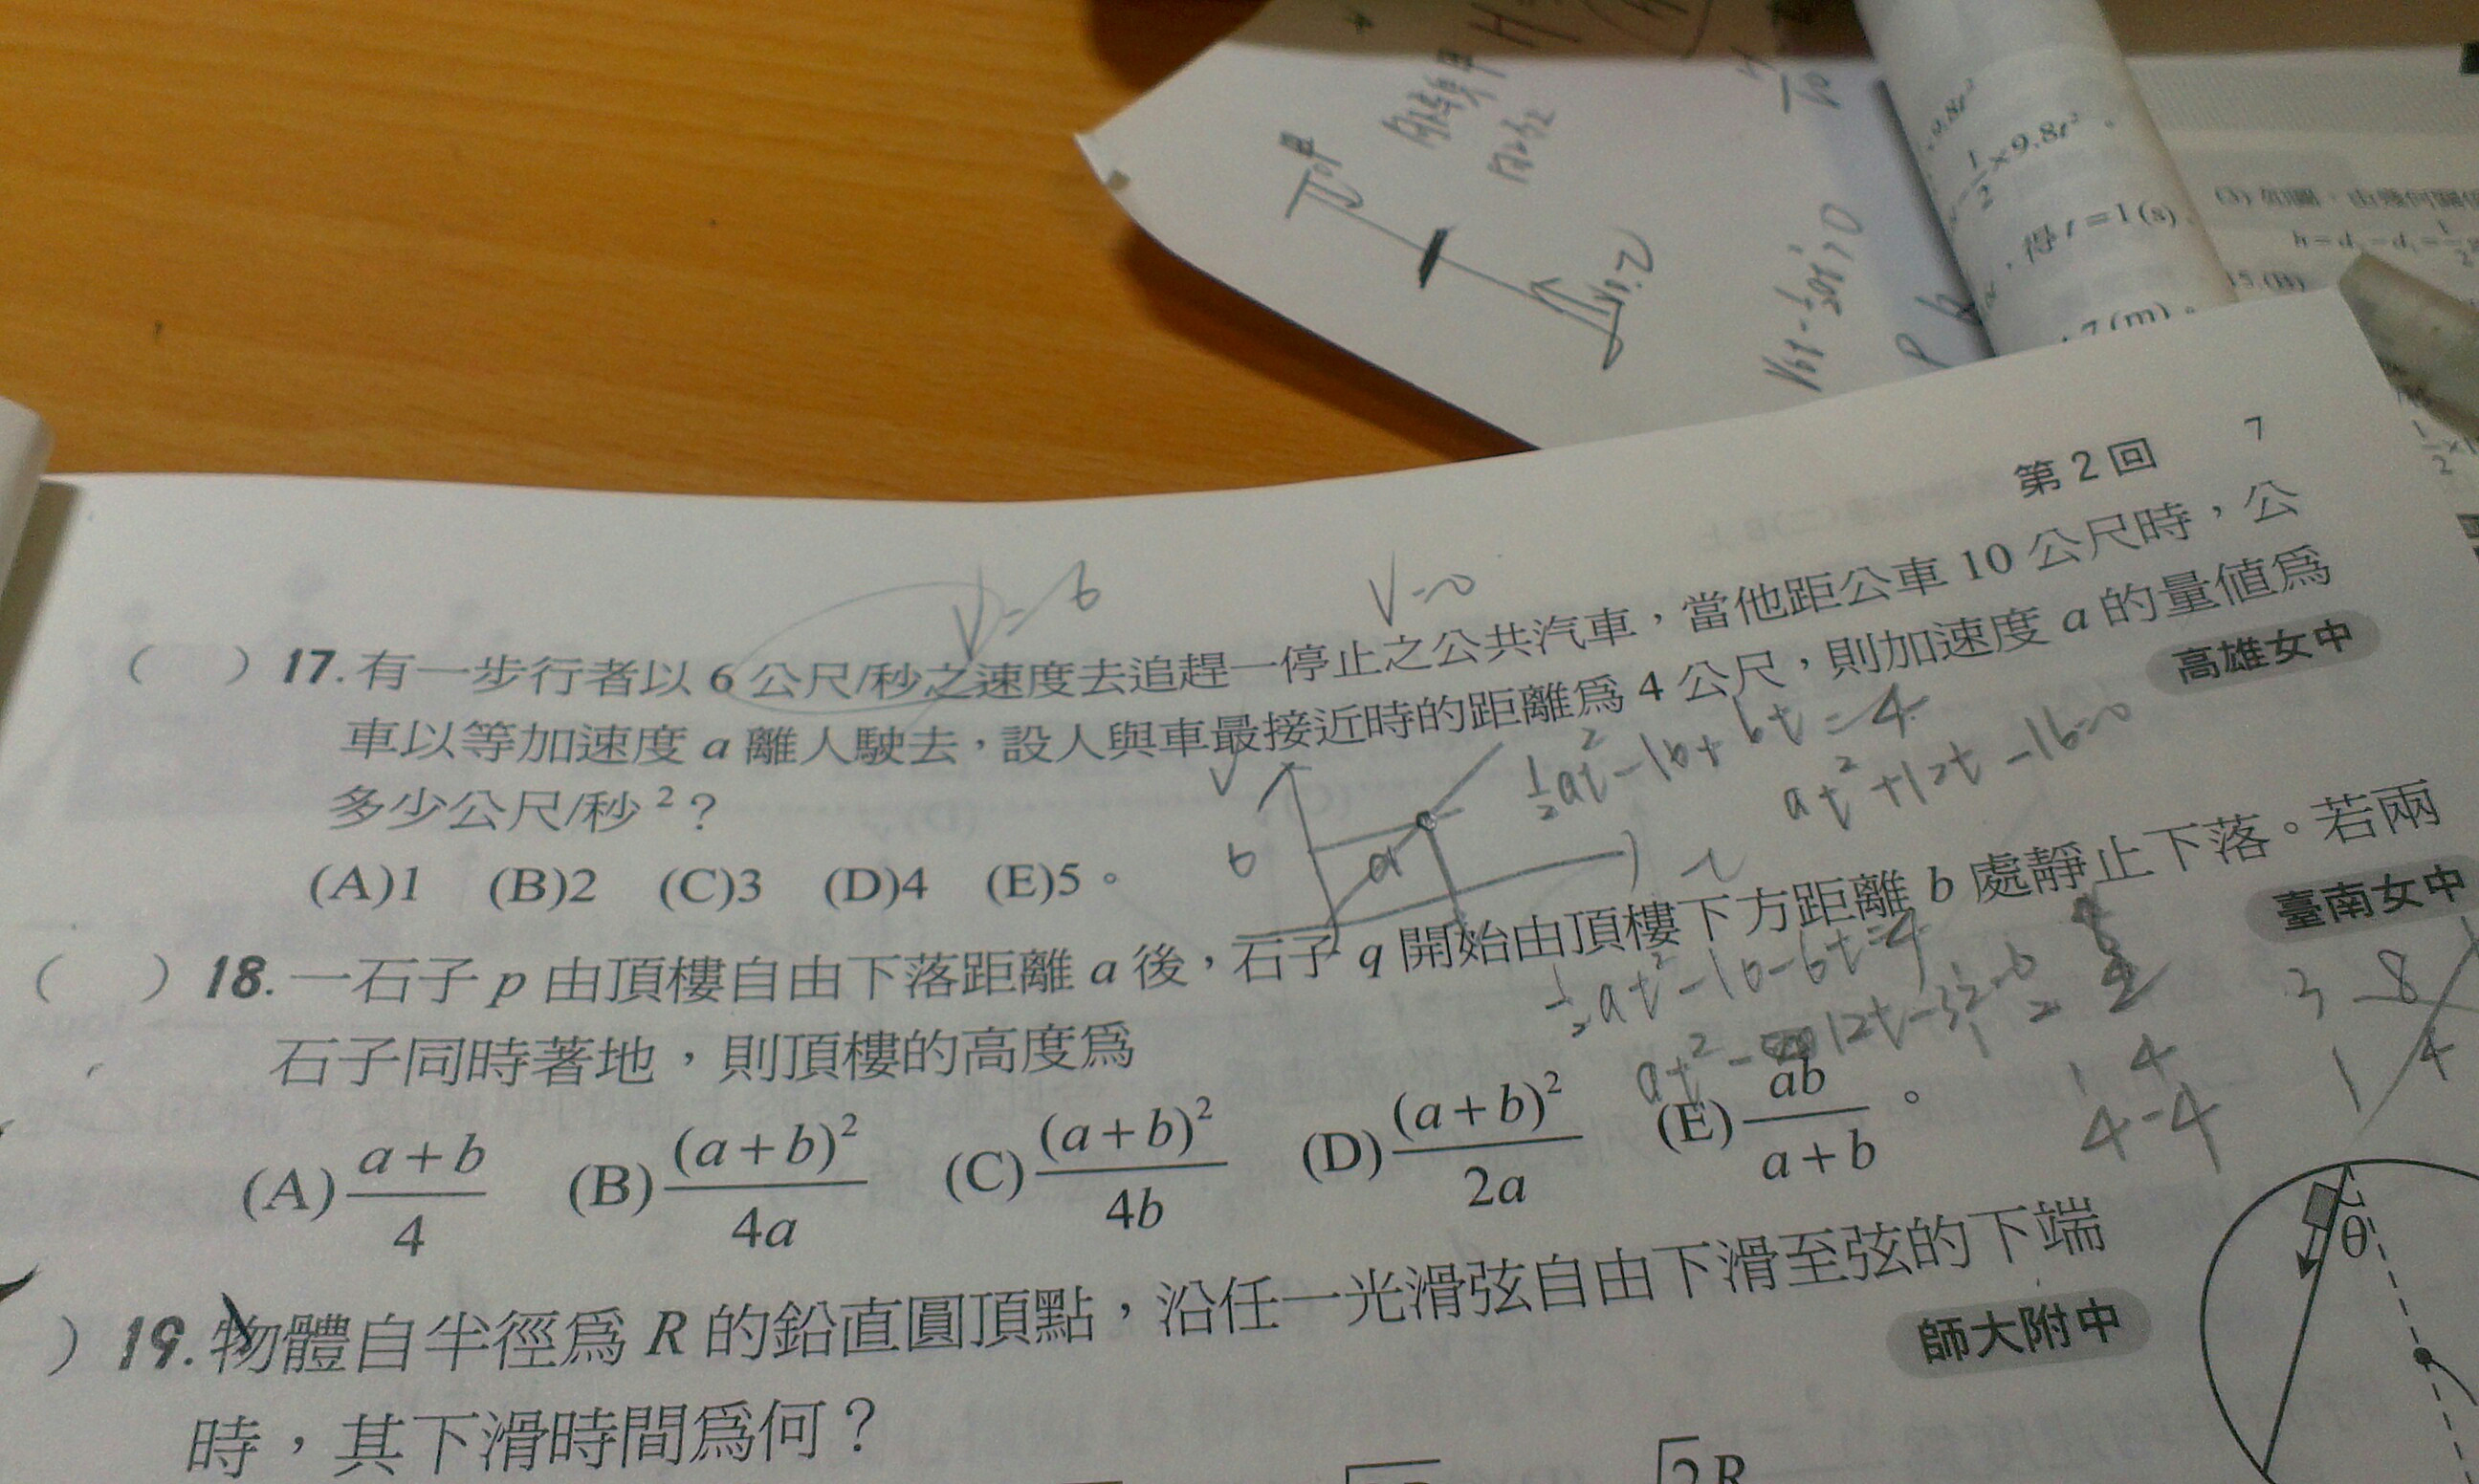 第2回 7
( ) 17. 有一步行者以 6 公尺/秒之速度去追趕一停止之公共汽車，當他距公車 10 公尺時，公
車以等加速度 a 離人駛去，設人與車最接近時的距離爲 4 公尺，則加速度 a 的量值爲
多少公尺/秒²？
高雄女中
(A)1 (B)2 (C)3 (D)4 (E)5。
( ) 18. 一石子 p 由頂樓自由下落距離 a 後，石子 q 開始由頂樓下方距離 b 處靜止下落。若兩
石子同時著地，則頂樓的高度爲
臺南女中
(A) (a+b)/4 (B) (a+b)²/4a (C) (a+b)²/4b (D) (a+b)²/2a (E) ab/(a+b)。
) 19. 物體自半徑爲 R 的鉛直圓頂點，沿任一光滑弦自由下滑至弦的下端
時，其下滑時間爲何？
師大附中
θ
V=6
V=0
½at²-10+6t=4
at²+12t-16=0
V
6
a
½at²-10-6t=4
3 8
1 4
1 4
4-4
½×9.8t²。
，得 t=1(s)
7(m)。
15.(B)